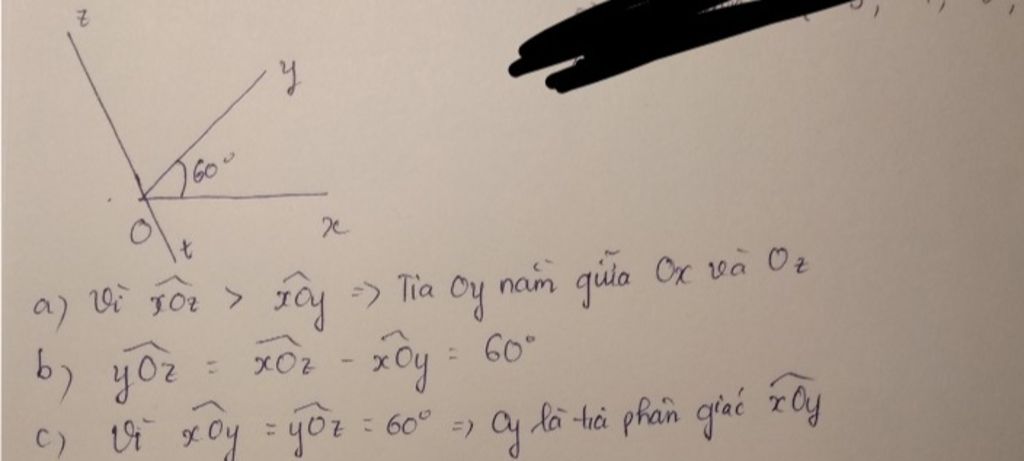 z
y
60°
O
x
t
a) Vì xÔz > xÔy => Tia Oy nằm giữa Ox và Oz
b) yÔz = xÔz - xÔy = 60°
c) Vì xÔy = yÔz = 60° => Oy là tia phân giác xÔy